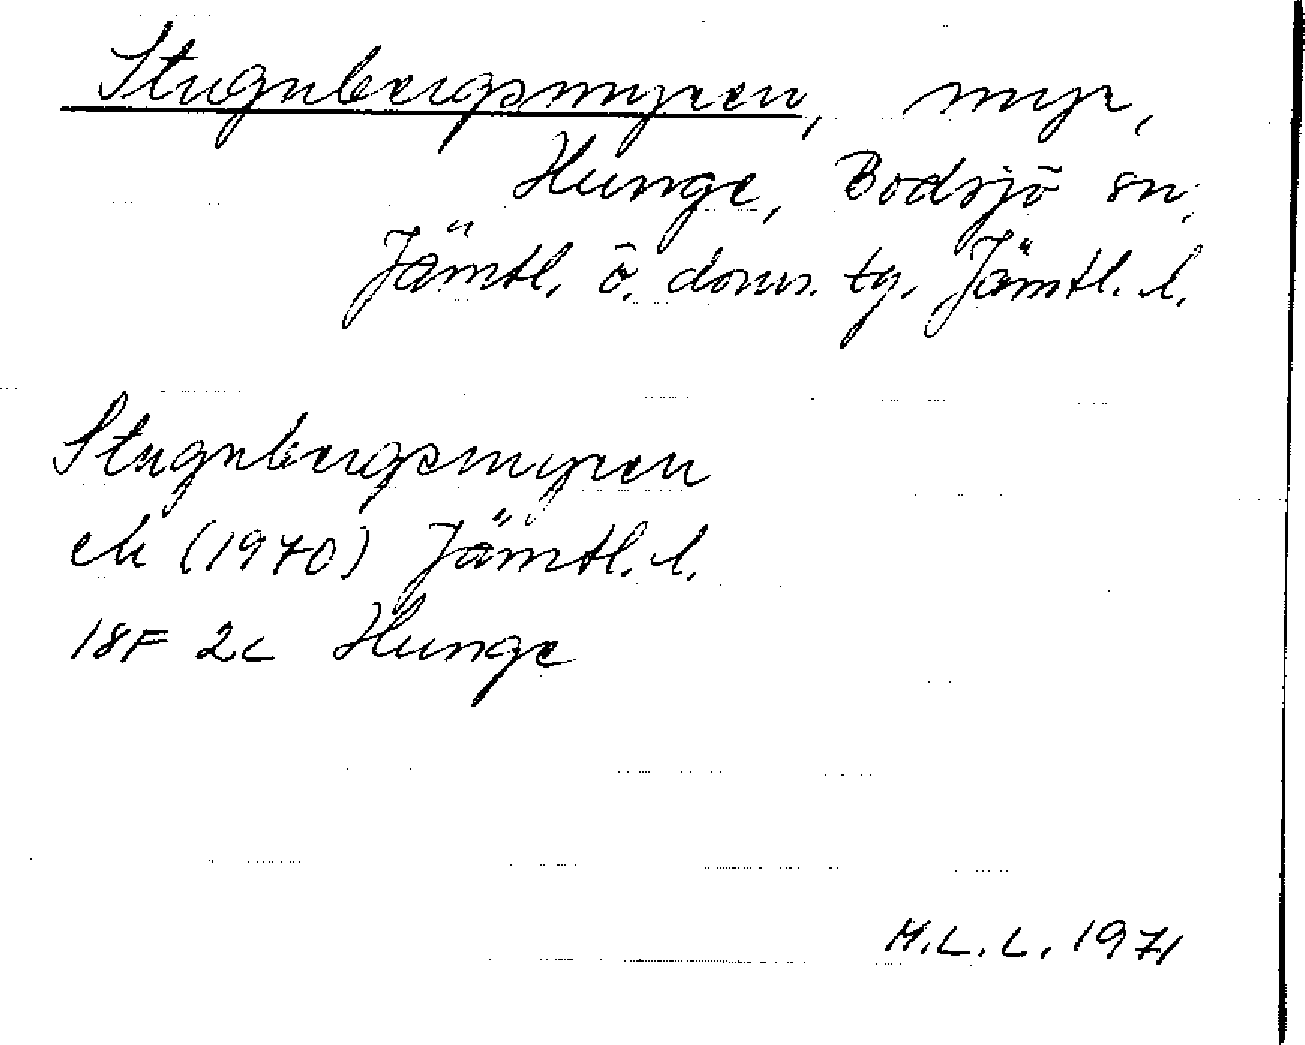 Stugnbergsmyren, myr,
Hunge, Bodsjö sn,
Jämtl. ö. doms. tg. Jämtl. l.
Stugnbergsmyren
ek (1970) Jämtl. l.
18F 2c Hunge
M.L.L. 1971